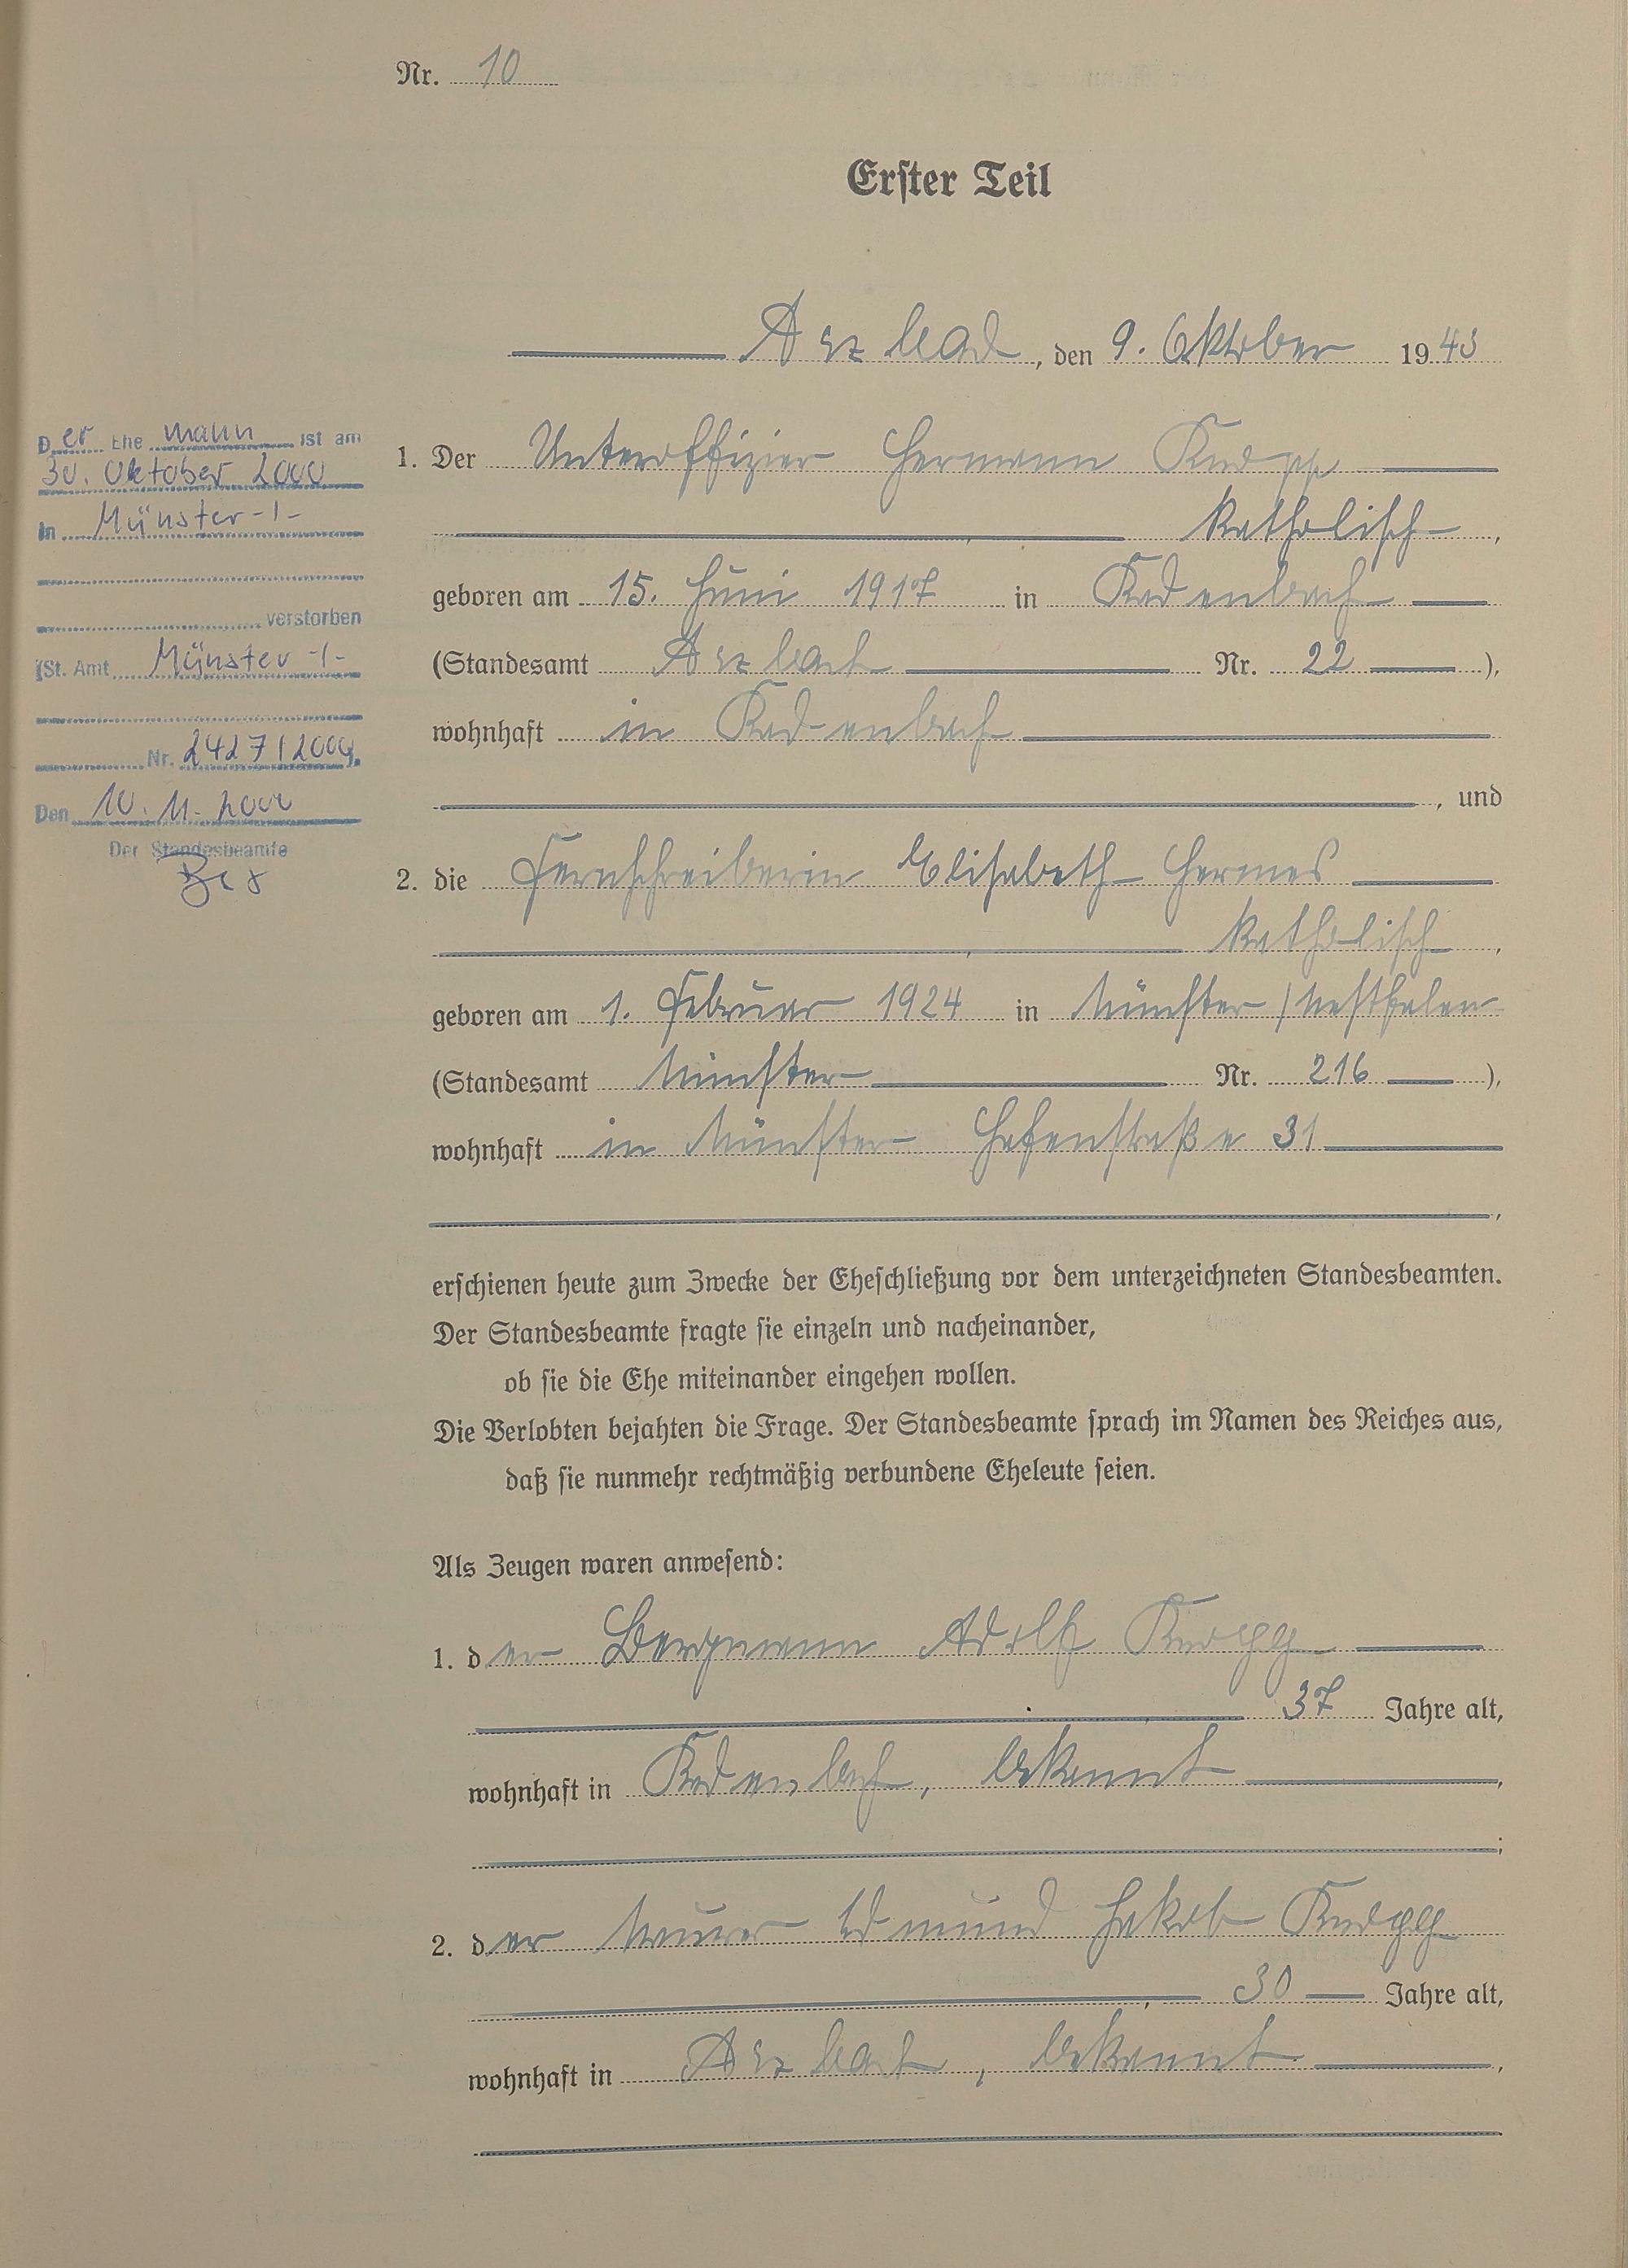 Nr. 10
Erster Teil
Arzbach, den 9. Oktober 1943
1. Der Unteroffizier Hermann Knopp
katholisch,
geboren am 15. Juni 1917 in Kadenbach
(Standesamt Arzbach Nr. 22 ),
wohnhaft in Kadenbach
, und
2. die Fernschreiberin Elisabeth Hermes
katholisch,
geboren am 1. Februar 1924 in Münster / Westfalen
(Standesamt Münster Nr. 216 ),
wohnhaft in Münster Hafenstraße 31
,
erschienen heute zum Zwecke der Eheschließung vor dem unterzeichneten Standesbeamten.
Der Standesbeamte fragte sie einzeln und nacheinander,
ob sie die Ehe miteinander eingehen wollen.
Die Verlobten bejahten die Frage. Der Standesbeamte sprach im Namen des Reiches aus,
daß sie nunmehr rechtmäßig verbundene Eheleute seien.
Als Zeugen waren anwesend:
1. der Bergmann Adolf Knopp
37 Jahre alt,
wohnhaft in Kadenbach, bekannt,
;
2. der Maurer Edmund Jakob Knopp
30 Jahre alt,
wohnhaft in Arzbach, bekannt,
Der Ehemann ist am
30. Oktober 2000
in Münster -1-
verstorben
(St. Amt Münster -1-
Nr. 2427/2000).
Den 10. 11. 2000
Der Standesbeamte